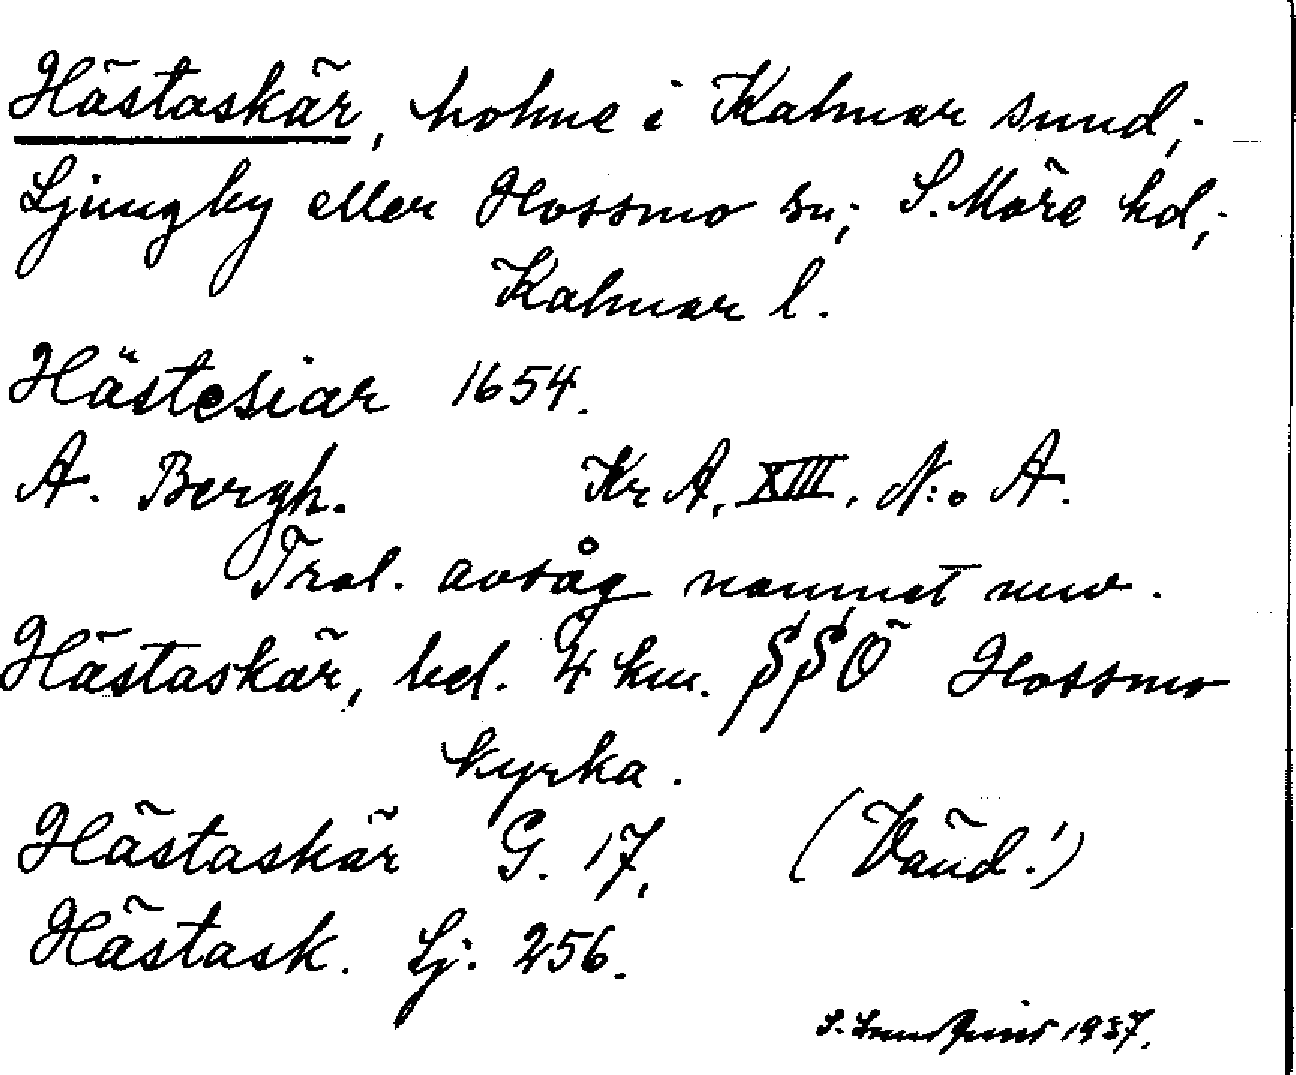 Hästaskär, holme i Kalmar sund,;
Ljungby eller Hossmo sn,; S. Möre hd,;
Kalmar l.
Hästesiar 1654.
A. Bergh. Kr A, XIII, N:o A.
Trol. avsåg namnet nuv.
Hästaskär, bel. 4 km. SSÖ Hossmo
kyrka.
Hästaskär G. 17, (Vänd!)
Hästask. Lj. 256.
1937.